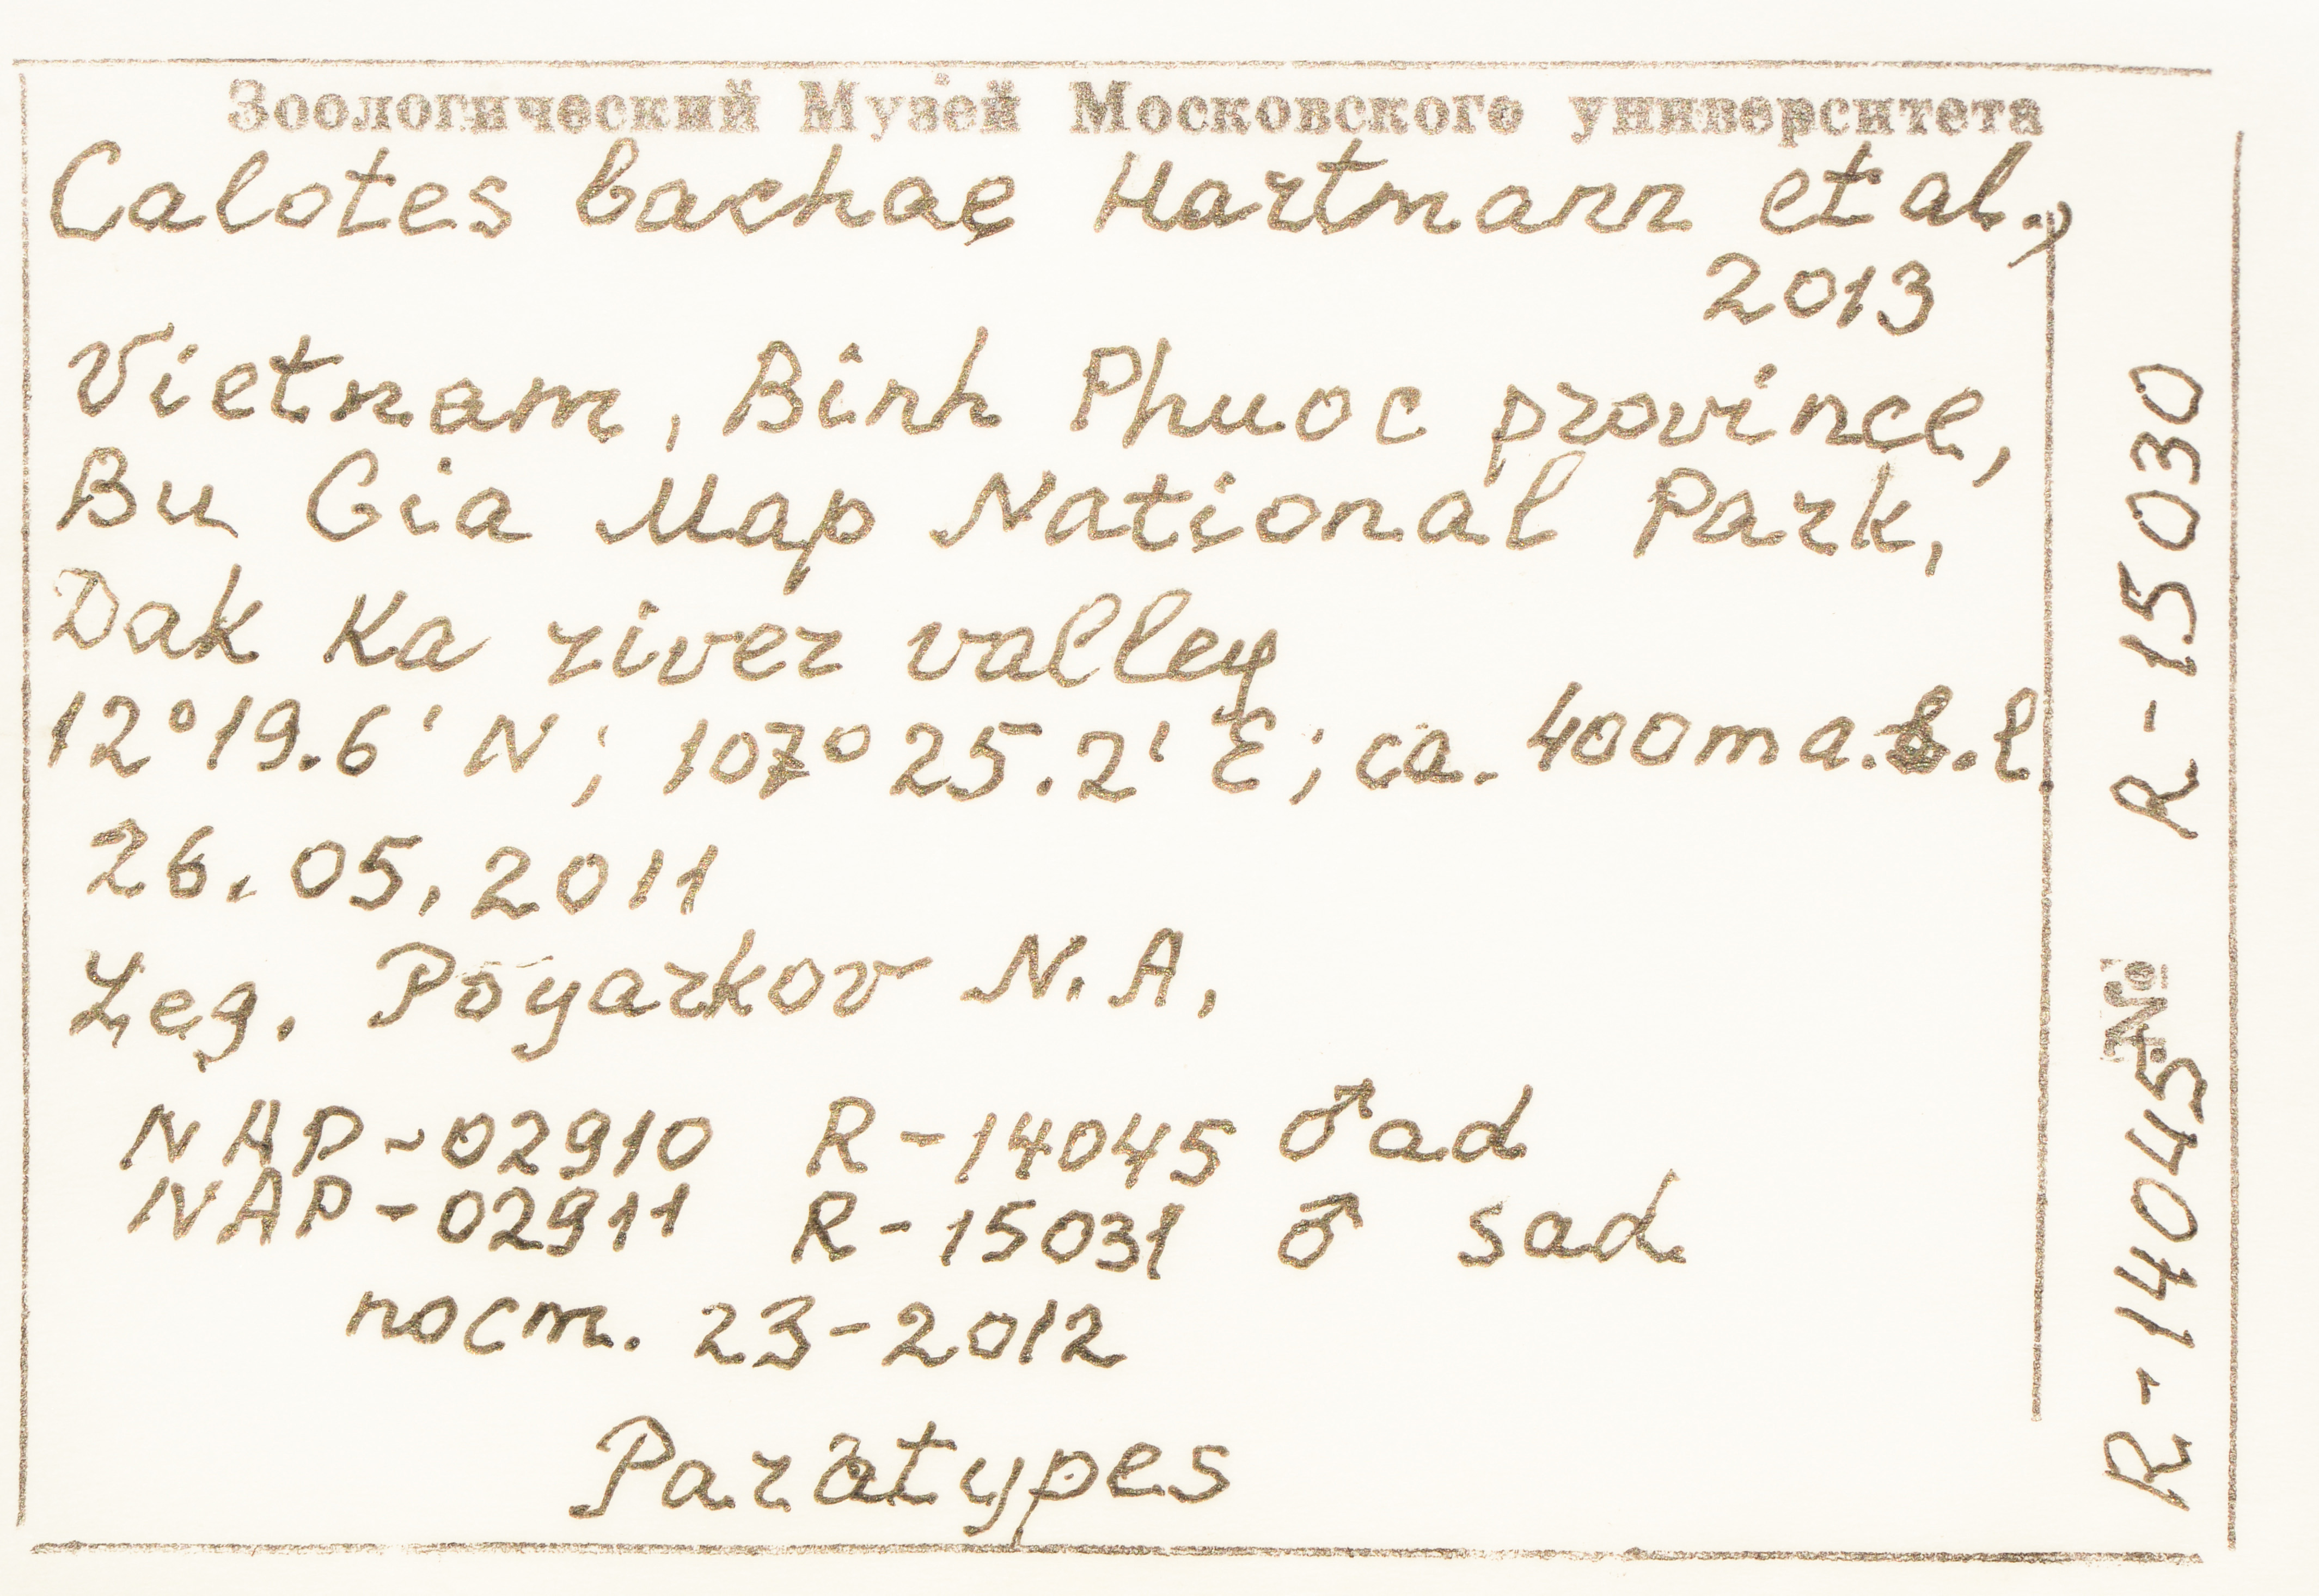 Зоологический Музей Московского университета
Calotes bachae Hartmann et al.,
2013
Vietnam, Binh Phuoc province,
Bu Gia Map National Park,
Dak Ka river valley
12°19.6' N; 107°25.2' E; ca. 400m a.s.l.
26.05.2011
Leg. Poyarkov N.A.
NAP-02910 R-14045 ♂ad
NAP-02911 R-15031 ♂ sad
пост. 23-2012
Paratypes
R-14045 № R-15030